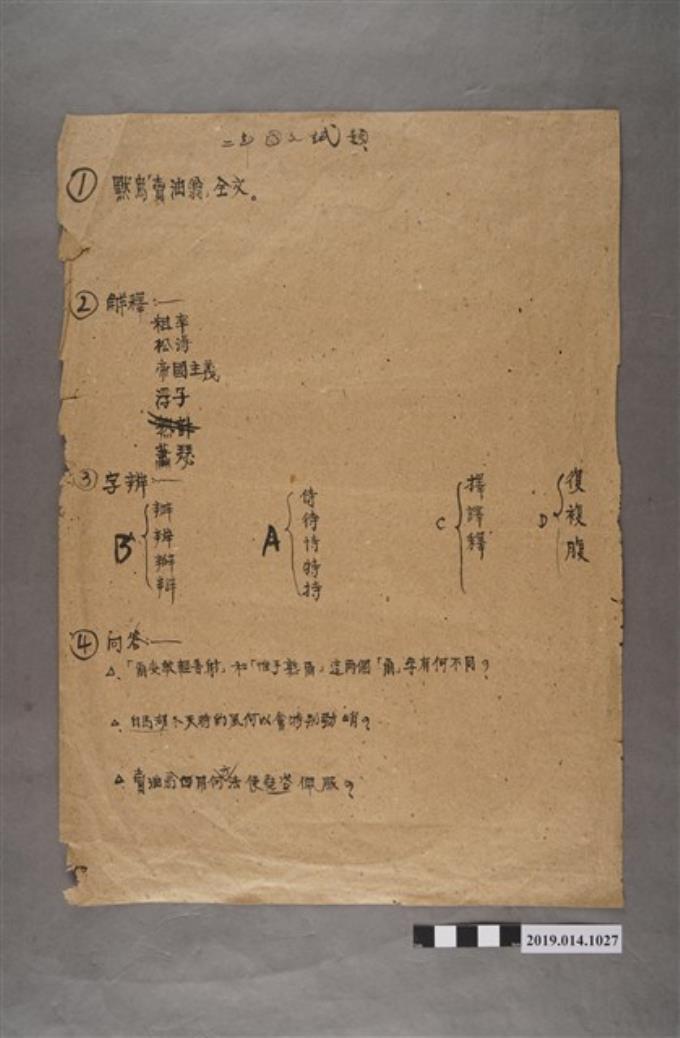 二史國文試題
① 默寫「賣油翁」全文。
② 解釋：—
粗率
松濤
帝國主義
浮子
蕭瑟
③ 字辨：—
B 瓣 辨 辦 辯
A 侍 待 恃 特 持
C 擇 譯 釋
D 復 複 腹
④ 問答：—
△「爾安敢輕吾射」和「惟手熟爾」這兩個「爾」字有何不同？
△白馬湖冬天時的風何以會特別勁峭？
△賣油翁用何方法使堯咨佩服？
2019.014.1027